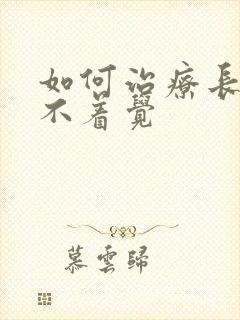 如何治療長
不着覺
慕雲歸